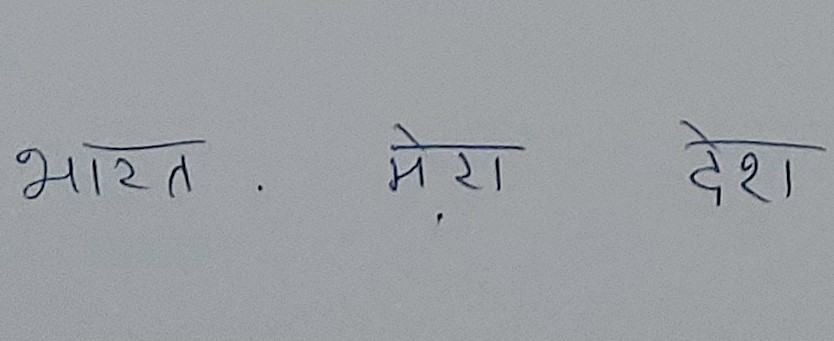 भारत . मेरा देश